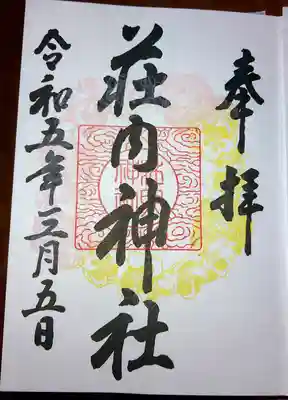 奉拝
荘内神社
令和五年三月五日